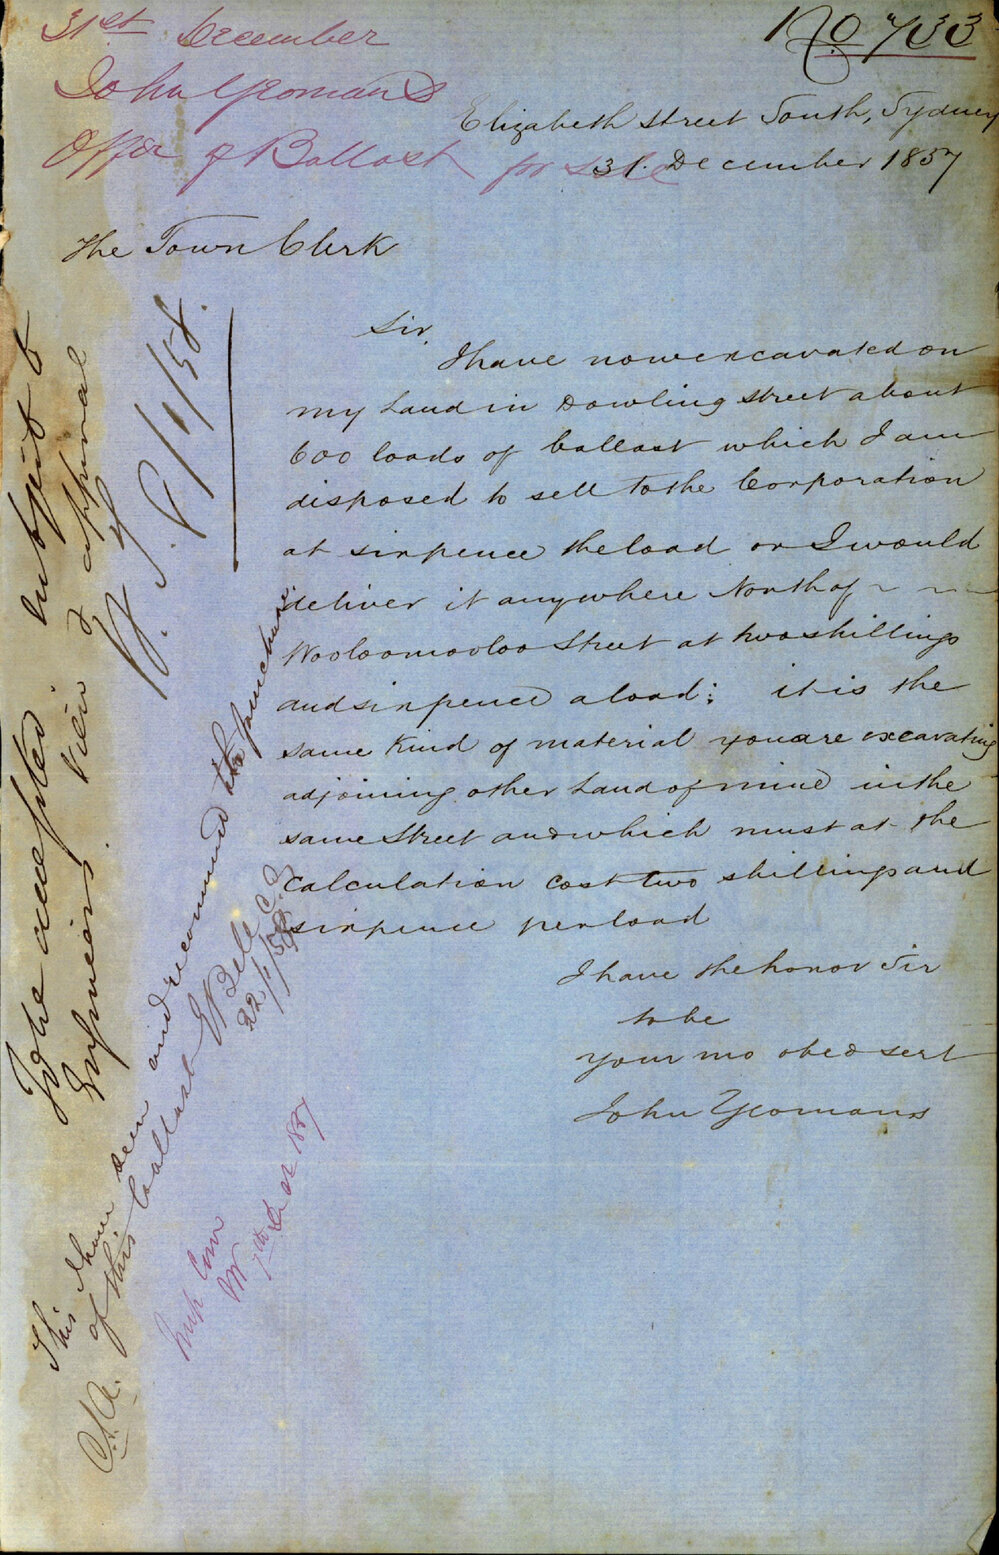 31st December
John Yeomans
Offer of Ballast for sale
No 733
Elizabeth Street South, Sydney
31. December 1857
The Town Clerk
Sir,
I have now excavated on
my Land in Dowling Street about
600 loads of ballast which I am
disposed to sell to the Corporation
at sixpence the load or I would
deliver it anywhere North of
Wooloomooloo Street at two shillings
and sixpence a load: it is the
same kind of material you are excavating
adjoining other Land of mine in the
same Street and which must at the
calculation cost two shillings and
sixpence per load
I have the honor Sir
to be
your mo obed sert
John Yeomans
To be accepted subject to
view & approval
1/1/58.
This I have seen and recommend the purchase
of this ballast E Bell C.S.
22/1/58
Imp Com